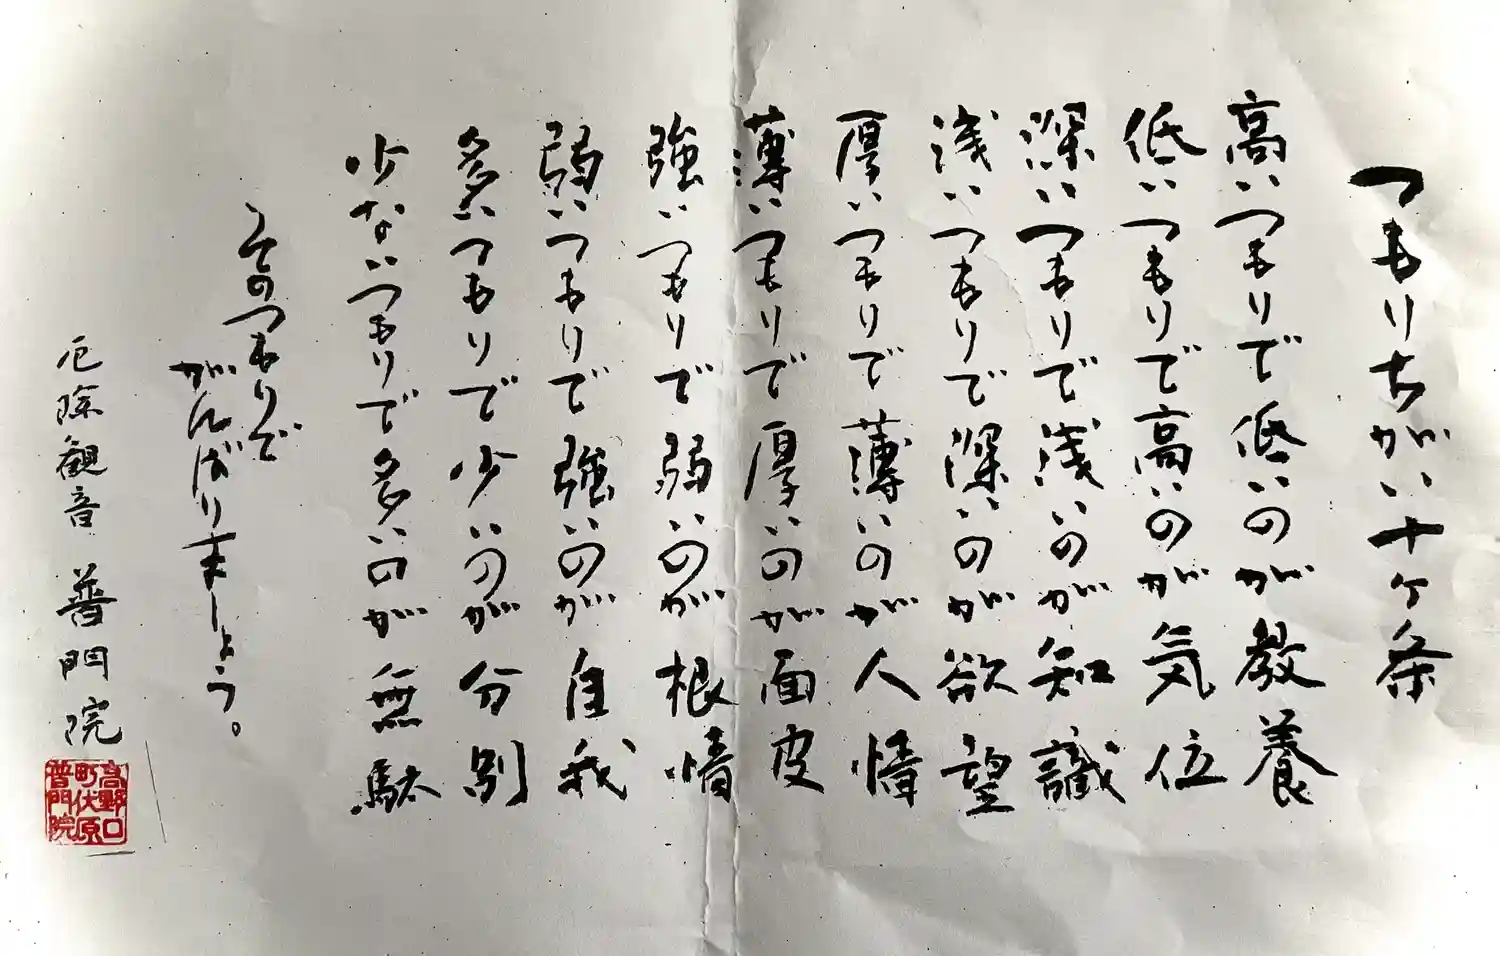 つもりちがい十ヶ条
高いつもりで低いのが教養
低いつもりで高いのが気位
深いつもりで浅いのが知識
浅いつもりで深いのが欲望
厚いつもりで薄いのが人情
薄いつもりで厚いのが面皮
強いつもりで弱いのが根情
弱いつもりで強いのが自我
多いつもりで少いのが分別
少ないつもりで多いのが無駄
そのつもりで
がんばりましょう。
厄除観音 普門院
高野口
町伏原
普門院